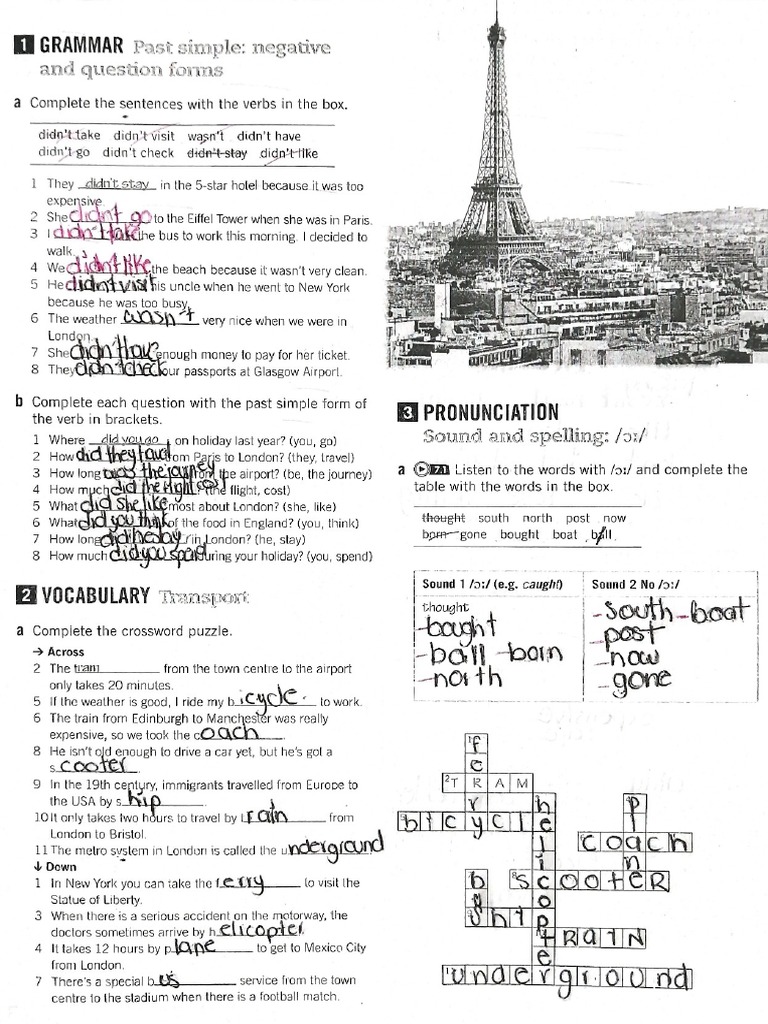 1 GRAMMAR Past simple: negative
and question forms
a Complete the sentences with the verbs in the box.
didn't take didn't visit wasn't didn't have
didn't go didn't check didn't stay didn't like
1 They didn't stay in the 5-star hotel because it was too
expensive.
2 She didn't go to the Eiffel Tower when she was in Paris.
3 I didn't take the bus to work this morning. I decided to
walk.
4 We didn't like the beach because it wasn't very clean.
5 He didn't visit his uncle when he went to New York
because he was too busy.
6 The weather wasn't very nice when we were in
London.
7 She didn't have enough money to pay for her ticket.
8 They didn't check our passports at Glasgow Airport.
b Complete each question with the past simple form of
the verb in brackets.
1 Where did you go on holiday last year? (you, go)
2 How did they travel from Paris to London? (they, travel)
3 How long was the journey from the airport? (be, the journey)
4 How much did the flight cost? (the flight, cost)
5 What did she like most about London? (she, like)
6 What did you think of the food in England? (you, think)
7 How long did he stay in London? (he, stay)
8 How much did you spend during your holiday? (you, spend)
2 VOCABULARY Transport
a Complete the crossword puzzle.
→ Across
2 The tram from the town centre to the airport
only takes 20 minutes.
5 If the weather is good, I ride my bicycle. to work.
6 The train from Edinburgh to Manchester was really
expensive, so we took the coach.
8 He isn't old enough to drive a car yet, but he's got a
scooter.
9 In the 19th century, immigrants travelled from Europe to
the USA by ship.
10 It only takes two hours to travel by train from
London to Bristol.
11 The metro system in London is called the underground
↓ Down
1 In New York you can take the ferry to visit the
Statue of Liberty.
3 When there is a serious accident on the motorway, the
doctors sometimes arrive by helicopter.
4 It takes 12 hours by plane to get to Mexico City
from London.
7 There's a special bus service from the town
centre to the stadium when there is a football match.
3 PRONUNCIATION
Sound and spelling: /ɔː/
a 7.1 Listen to the words with /ɔː/ and complete the
table with the words in the box.
thought south north post now
born gone bought boat ball
Sound 1 /ɔː/ (e.g. caught) Sound 2 No /ɔː/
thought
-bought
-ball -born
-north
-south -boat
-post
-now
-gone
1 f
e
2 T R A M
r
bicycle
coach
scooter
TRAIN
underground